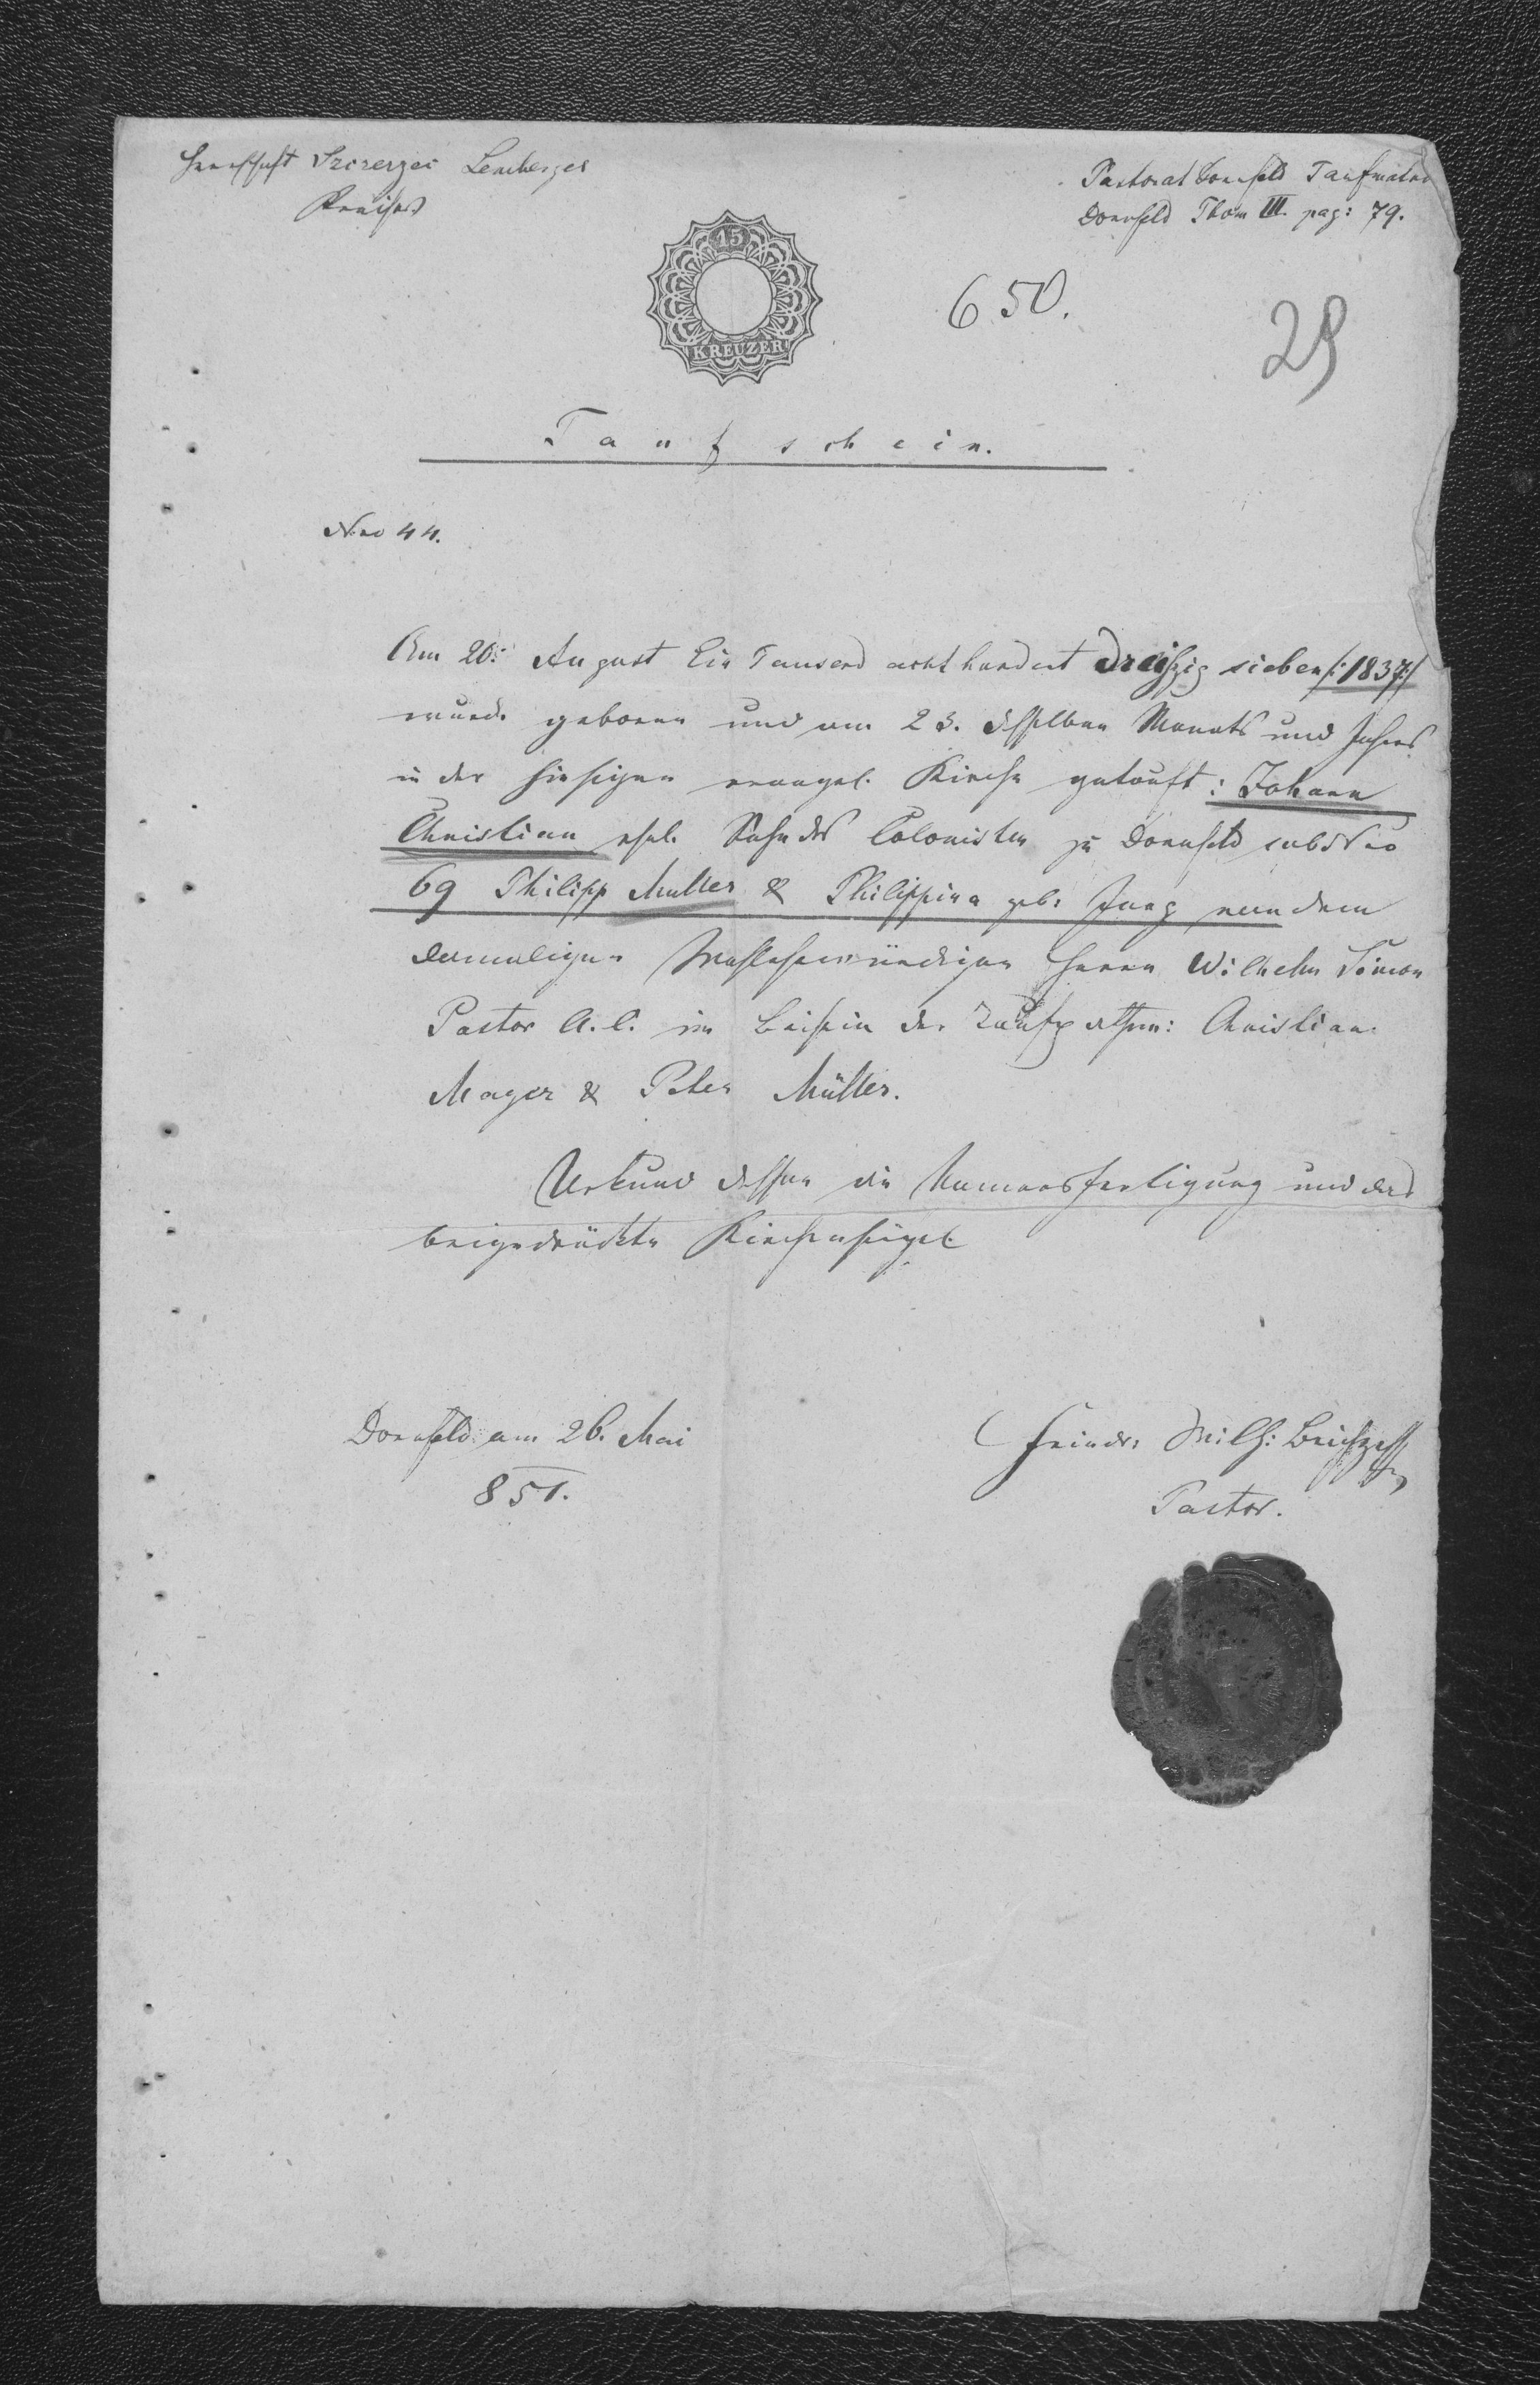 Herrschaft Szczerzec Lemberger
Kreises
Pastorat Dornfeld Taufmatrik
Dornfeld Thom III. pag: 79.
15
KREUZER
650.
29
Taufschein.
Nro 44.
Am 20. August Ein Tausend acht hundert dreißig sieben /:1837:/
wurde geboren und am 23. desselben Monats und Jahres
in der hiesigen evangel. Kirche getauft: Johann
Christian ehel. Sohn des Colonisten zu Dornfeld sub Nro
69 Philipp Müller & Philippina geb: Jung von dem
damaligen Wohlehrwürdigen Herrn Wilhelm Simon
Pastor A. C. im Beisein der Taufpathen: Christian
Mayer & Peter Müller.
Urkund dessen die Namensfertigung und das
beigedrückte Kirchensigel
Dornfeld am 26. Mai
851.
Friedr: Wilh:
Pastor.